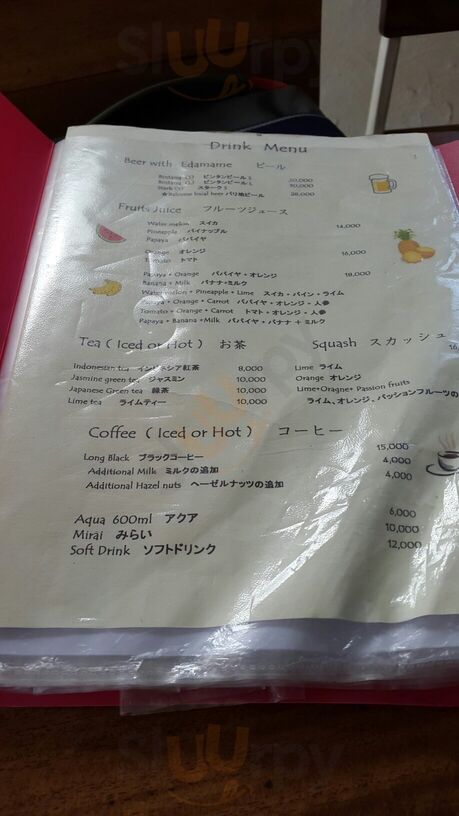 Drink Menu
Beer with Edamame ビール
Bintang (S) ビンタンビール S 30,000
Bintang (L) ビンタンビール L 50,000
Stark (S) スターク S
★Balinese local beer バリ地ビール 28,000
Fruits Juice フルーツジュース
Water melon スイカ 14,000
Pineapple パイナップル
Papaya パパイヤ
Orange オレンジ 16,000
Tomato トマト
Papaya + Orange パパイヤ・オレンジ 18,000
Banana + Milk バナナ・ミルク
Water melon + Pineapple + Lime スイカ・パイン・ライム
Papaya + Orange + Carrot パパイヤ・オレンジ・人参
Tomato + Orange + Carrot トマト・オレンジ・人参
Papaya + Banana +Milk パパイヤ・バナナ + ミルク
Tea ( Iced or Hot ) お茶
Indonesian tea インドネシア紅茶 8,000
Jasmine green tea ジャスミン 10,000
Japanese Green tea 緑茶 10,000
Lime tea ライムティー 10,000
Squash スカッシュ
Lime ライム
Orange オレンジ
Lime+Oragne+ Passion fruits
ライム、オレンジ、パッションフルーツの
Coffee ( Iced or Hot ) コーヒー
Long Black ブラックコーヒー 15,000
Additional Milk ミルクの追加 4,000
Additional Hazel nuts ヘーゼルナッツの追加 4,000
Aqua 600ml アクア 6,000
Mirai みらい 10,000
Soft Drink ソフトドリンク 12,000
Sluurpy
Sluurpy